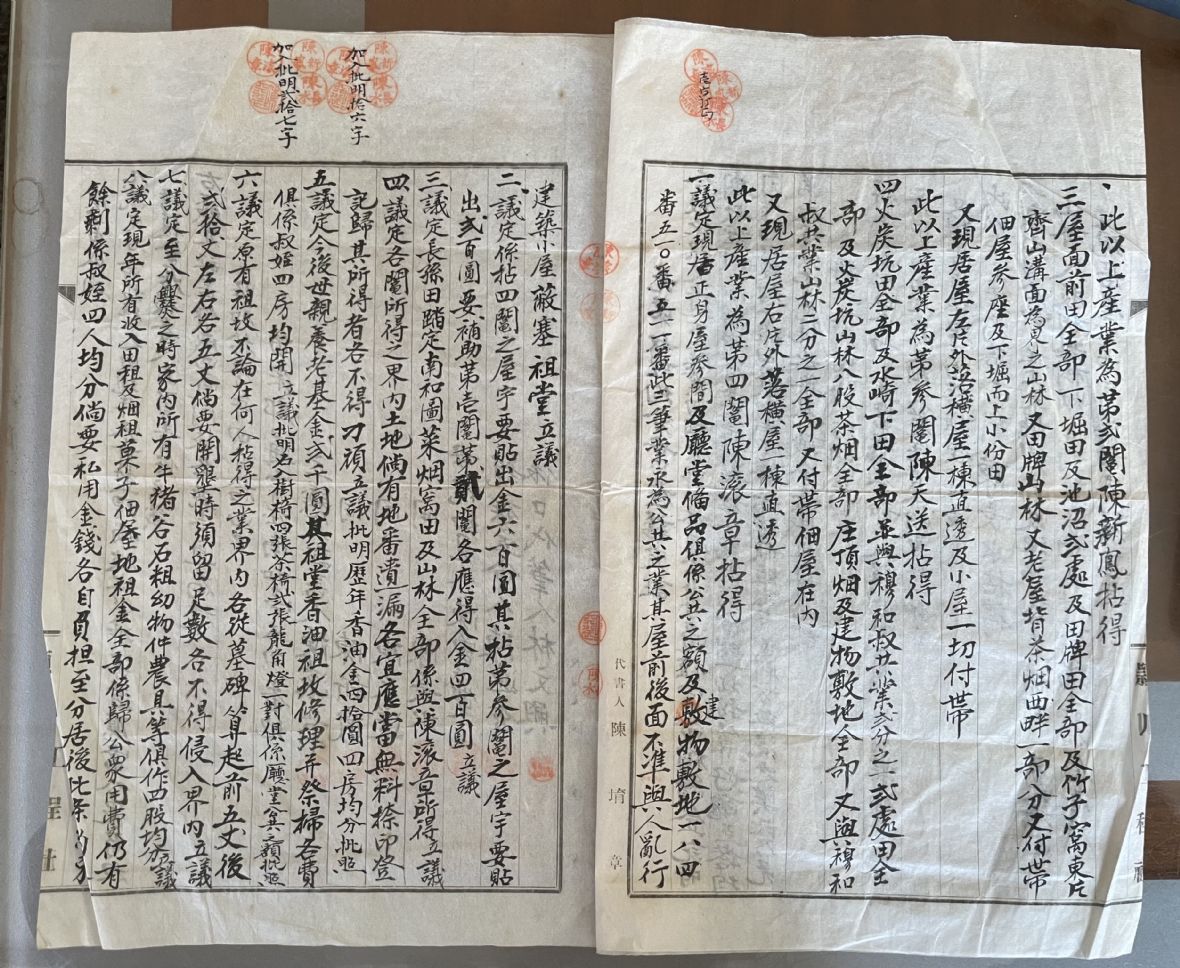 一、此以上產業為第弍鬮陳新鳳拈得
三屋面前田全部下堀田及池沼弍處及田牌田全部及竹子窩東片
齊山溝面為界之山林又田牌山林又老屋背茶畑西畔一部分又付帶
佃屋參座及下堀面上小份田
又現居屋左片外落橫屋一棟直透及小屋一切付帶
此以上產業為第參鬮陳天送拈得
四火炭坑田全部及水崎下田全部並與穆和叔共業弍分之一弍處田全
部及火炭坑山林八股茶畑全部庄頂畑及建物敷地全部又與穆和
叔共業山林二分之一全部又付帶佃屋在內
又現居屋右片外落橫屋一棟直透
此以上產業為第四鬮陳滾章拈得
一議定現居正身屋參間及廳堂備品俱係公共之額及建物敷地一八四
番五一〇番五一一番此三筆業永為公共之業其屋前後面不準與人亂行
代書人 陳堉章
加入批明拾六字
加入批明弍拾七字
建築小屋蔽塞祖堂立議
二、議定係拈四鬮之屋宇要貼出金六百圓其拈第參鬮之屋宇要貼
出弍百圓要補助第壱鬮第貳鬮各應得入金四百圓立議
三、議定長孫田踏定南和圖菜畑窩田及山林全部係與陳滾章所得立議
四、議定各鬮所得之界內土地倘有地番遺漏各宜應當無料捺印登
記歸其所得者各不得刁頑立議批明歷年香油金四拾圓四房均分批照
五議定今後母親養老基金弍千圓其祖堂香油祖坟修理并祭掃各費
俱係叔姪四房均開立議批明石樹椅四張茶椅弍張龍角燈一對俱係廳堂兵額批照
六議定原有祖坟不論在何人拈得之業界內各從墓碑算起前五丈後
弍拾丈左右各五丈倘要開墾時須留足數各不得侵入界內立議
七議定至分爨之時家內所有牛猪谷石粗幼物件農具等俱作四股均分立議
八議定現年所有收入田租及畑租菓子佃屋地租金全部係歸公眾用費仍有
餘剩係叔姪四人均分倘要私用金錢各自負担至分居後此条